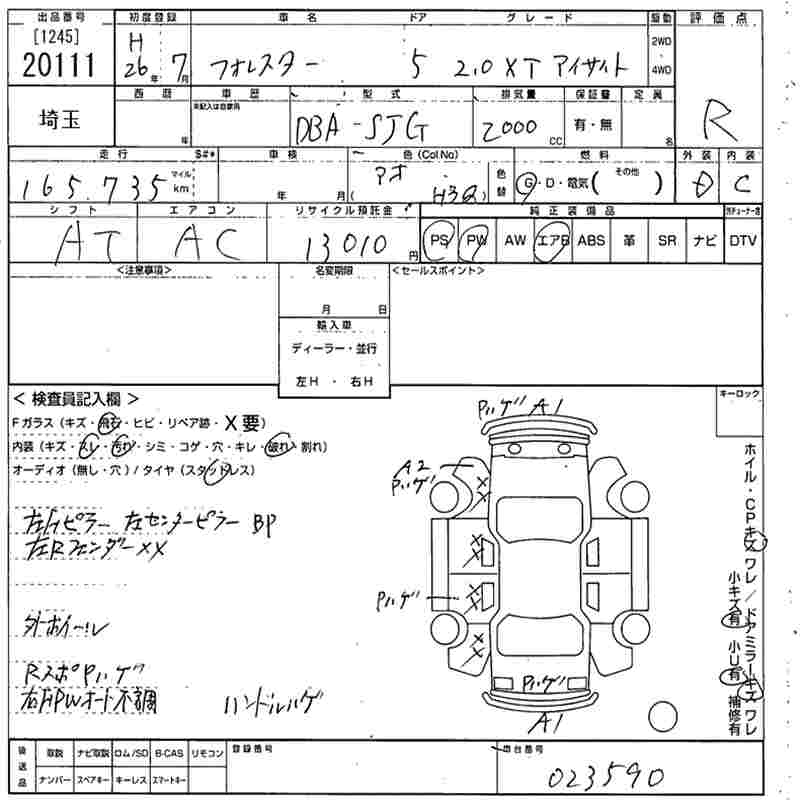 出品番号 初度登録 車名 ドア グレード 駆動 評価点
[1245]
20111
H 26年 7月 フォレスター 5 2.0 XT アイサイト 2WD ・ 4WD
R
埼玉
西暦 車歴 型式 排気量 保証書 定員
未記入は自家用
年 DBA-SJG 2000 CC 有・無 名
走行 S#* 車検 色(Col.No) 燃料 外装 内装
165,735 マイル km 年 月 アオ ( ) 色替 G・D・電気( その他 ) D C
シフト エアコン リサイクル預託金 純正装備品
AT AC 13010 円 PS PW AW エアB ABS 革 SR ナビ DTV
<注意事項> 名変期限 <セールスポイント>
月 日
輸入車
ディーラー・並行
左H ・ 右H
< 検査員記入欄 > キーロック
Fガラス(キズ・飛石・ヒビ・リペア跡・X要)
内装(キズ・スレ・汚れ・シミ・コゲ・穴・キレ・破れ・割れ)
オーディオ(無し・穴)/タイヤ(スタッドレス)
Pハゲ A1
A2
Pハゲ
左Aピラー 左センターピラー BP
左Rフェンダー XX
Pハゲ
外ホイール
RスポPハゲ
右FPWオート不調 ハンドルハゲ
Pハゲ
A1
ホイル・CPキズ ワレ / ドアミラーキズ ワレ
小キズ有 小U有 補修有
後送品 取説 ナビ取説 ロム/SD B-CAS リモコン 登録番号 車台番号
ナンバー スペアキー キーレス スマートキー
023590